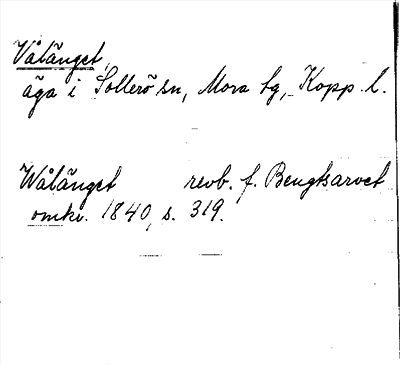 Vålänget,
äga i Sollerö sn, Mora tg, Kopp. l.
Wålänget revb. f. Bengtsarvet
omkr. 1840, s. 319.